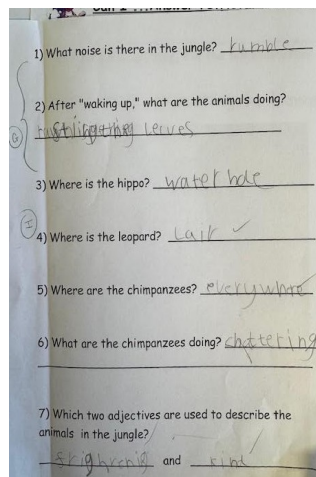 1) What noise is there in the jungle? rumble
2) After "waking up," what are the animals doing?
lerves
3) Where is the hippo? water hole
4) Where is the leopard? Lair ✓
5) Where are the chimpanzees? everywhere
6) What are the chimpanzees doing? chattering
7) Which two adjectives are used to describe the
animals in the jungle?
and kind